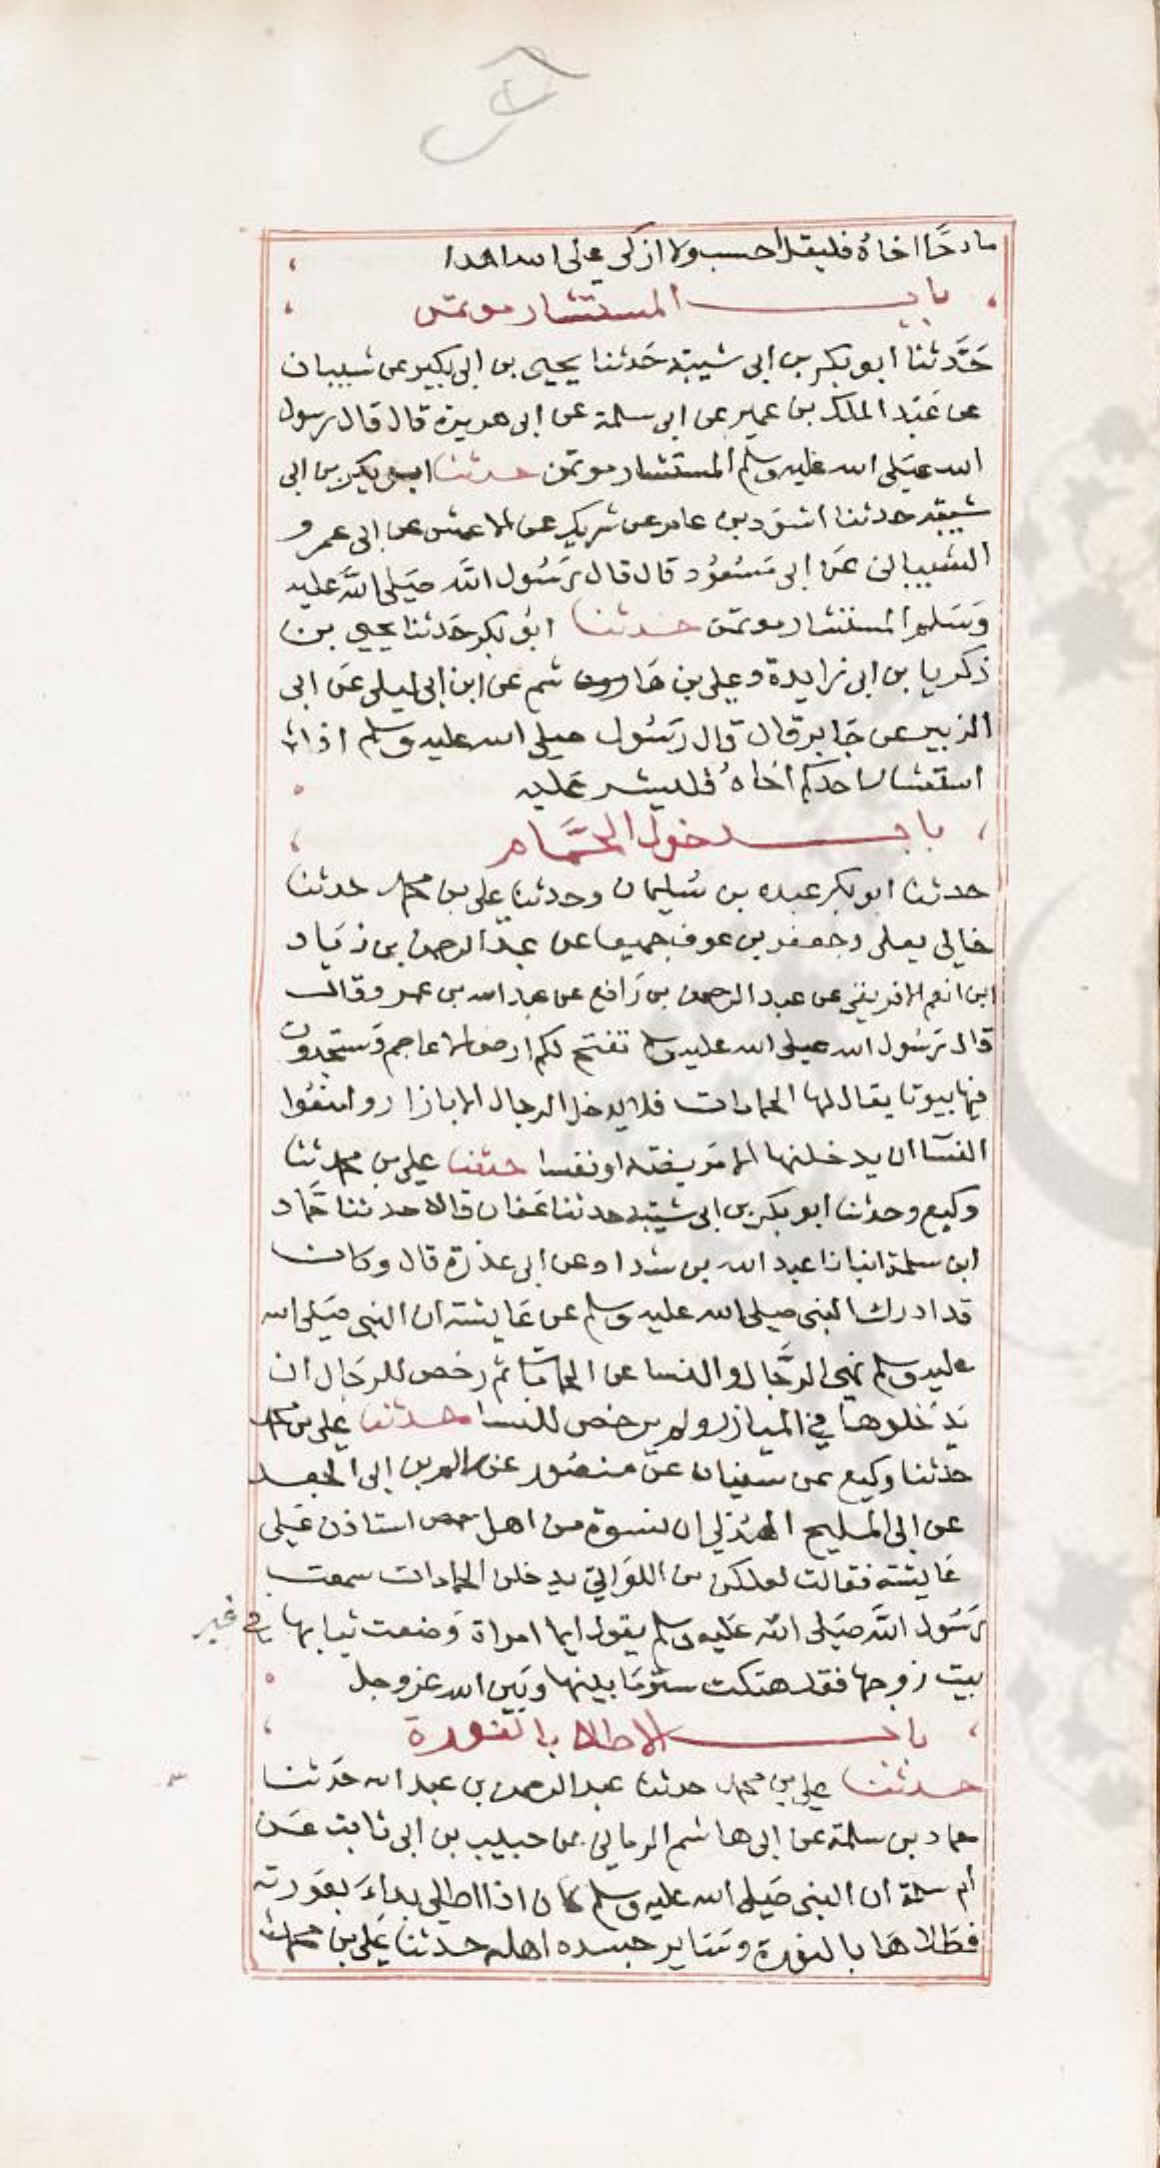 مادحًا اخاه فليقل احسب ولا ازكي على الله احدا
باب المستشار موتمن
حَدَّثنا ابو بكر بن ابى شيبة حَدثنا يحيى بن ابى بكير عن شيبان
عن عَبْد الملك بن عمير عن ابى سلمة عن ابى هريرة قال قال رسول
الله صَلى الله عليه وسلم المستشار موتمن حدثنا ابو بكر بن ابى
شيبة حدثنا اسْوَد بن عامر عن شريك عن الاعمش عن ابى عمرو
الشيبانى عَن ابى مَسْعُوْد قال قال رَسُول اللَّه صَلى اللَّه عليه
وَسَلم المستشار موتمن حدثنا ابُو بكر حَدثنا يحيى بن
زكريا بن ابى زايدة وعلى بن هَاشم عن ابن ابى ليلى عَن ابى
الزبير عن جَابر قال قال رَسُول صلى الله عليه وسلم اذا
استشار احدكم اخاهُ فليشر عَليه
باب دخول الحَمَّام
حدثنا ابو بكر عبده بن سُليمان وحدثنا على بن محمد حدثنا
خالي يعلى وجعفر بن عوف جميعا عن عبد الرحمن بن زيَاد
ابن انعم الافريقى عن عبد الرحمن بن رَافع عن عبد الله بن عمرو قال
قال رَسُول الله صلى الله عليه وسلم تفتح لكم ارض الاعاجم وَستجدون
فيها بيوتا يقال لها الحمامات فلا يدخل الرجال الا بازار وامنعُوا
النسَآ ان يدخلنها الا مَريضة او نفسا حدثنا على بن محمد ثنا
وكيع وحدثنا ابو بكر بن ابى شيبَة حدثنا عَفان قالا حدثنا حَمَّاد
ابن سلمة انبانا عبد الله بن شداد عن ابى عذرة قال وكان
قد ادرك النبى صلى الله عليه وسلم عن عَايشة ان النبى صَلى الله
عليه وسلم نهى الرّجَال والنسا عن الحمامَات ثم رخص للرجَال ان
يَدْخلوها في الميازر ولم يرخص للنسا حدثنا عَلى بن محمد
حدثنا وكيع عن سُفيان عن منصُور عن سالم بن ابى الجعد
عن ابى المليح الهُذلي ان نسوة من اهل حمص استاذن عَلى
عَايشة فقالت لعلكن من اللوَاتي يدخلن الحمامات سمعت
رَسُول اللَّه صَلى الله عَليه وسلم يقول ايما امراة وَضعت ثيابها في غير
بيت زوجها فقد هتكت سترمَا بينها وبَين الله عز وجل
باب الاطلا بالنورة
حدثنا على بن محمد حدثنا عبد الرحمن بن عبد الله حدَثنا
حماد بن سلمة عن ابى هاشم الرمانى عن حبيب بن ابى ثابت عَن
أم سلمة ان النبى صَلى الله عليه وسلم كان اذا اطلى بداءَ بعَورته
فطَلاهَا بالنورة وسَاير جسده اهله حدثنا عَلى بن محمد ثنا